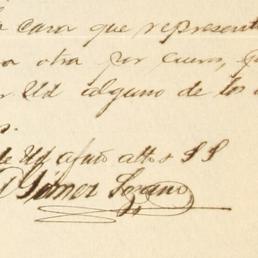 casa que represent
otra por cuero, q
Ud alguno de los
de Ud afmo atto S S
Gomez Lozano